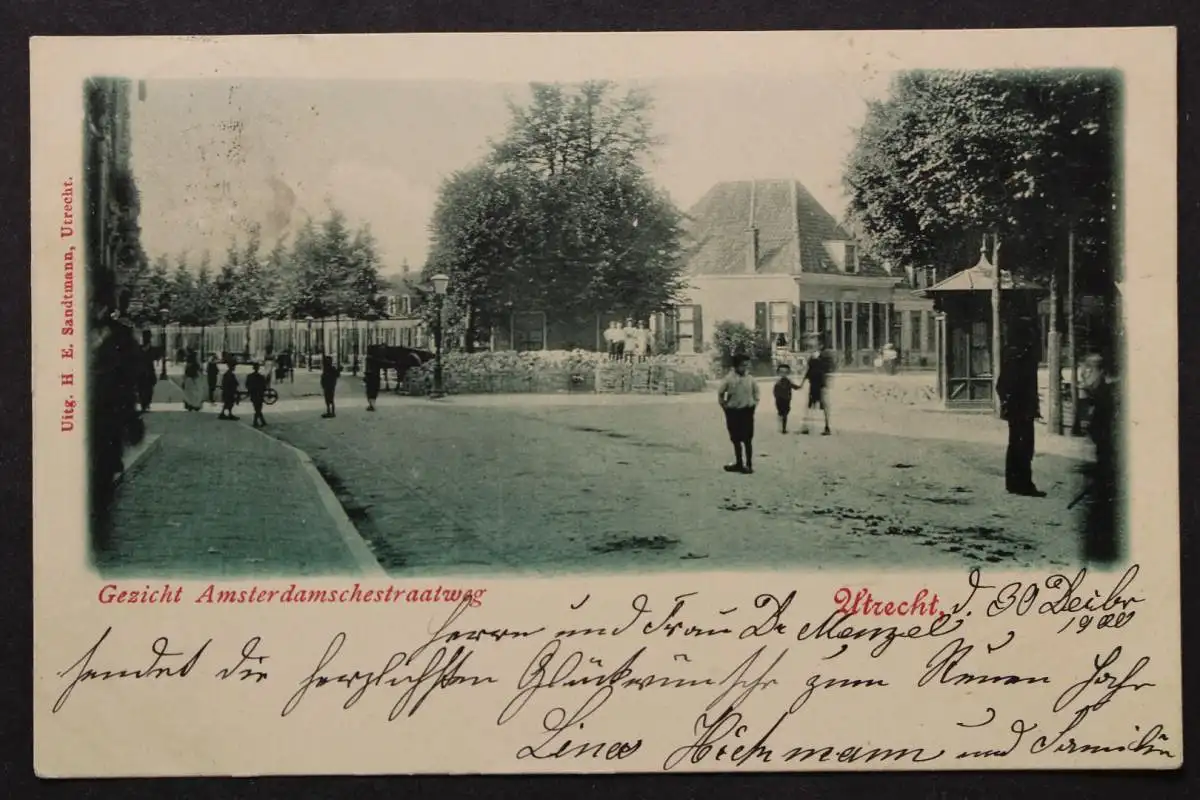 Uitg. H. E. Sandtmann, Utrecht.
Gezicht Amsterdamschestraatweg
Utrecht, d. 30 Decbr
1900
Herrn und Frau Dr. Menzel
sendet die herzlichsten Glückwünsche zum Neuen Jahr
Lina Hichmann und Familie